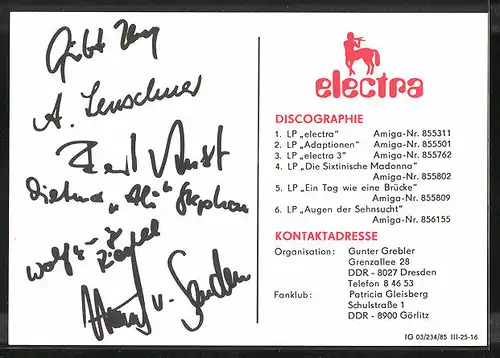 A. Leuschner
Bernd Aust
"Ali" Stephan
v.
electra
DISCOGRAPHIE
1. LP „electra" Amiga-Nr. 855311
2. LP „Adaptionen" Amiga-Nr. 855501
3. LP „electra 3" Amiga-Nr. 855762
4. LP „Die Sixtinische Madonna"
Amiga-Nr. 855802
5. LP „Ein Tag wie eine Brücke"
Amiga-Nr. 855809
6. LP „Augen der Sehnsucht"
Amiga-Nr. 856155
KONTAKTADRESSE
Organisation: Gunter Grebler
Grenzallee 28
DDR - 8027 Dresden
Telefon 8 46 53
Fanklub: Patricia Gleisberg
Schulstraße 1
DDR - 8900 Görlitz
IG 03/234/85 III-25-16